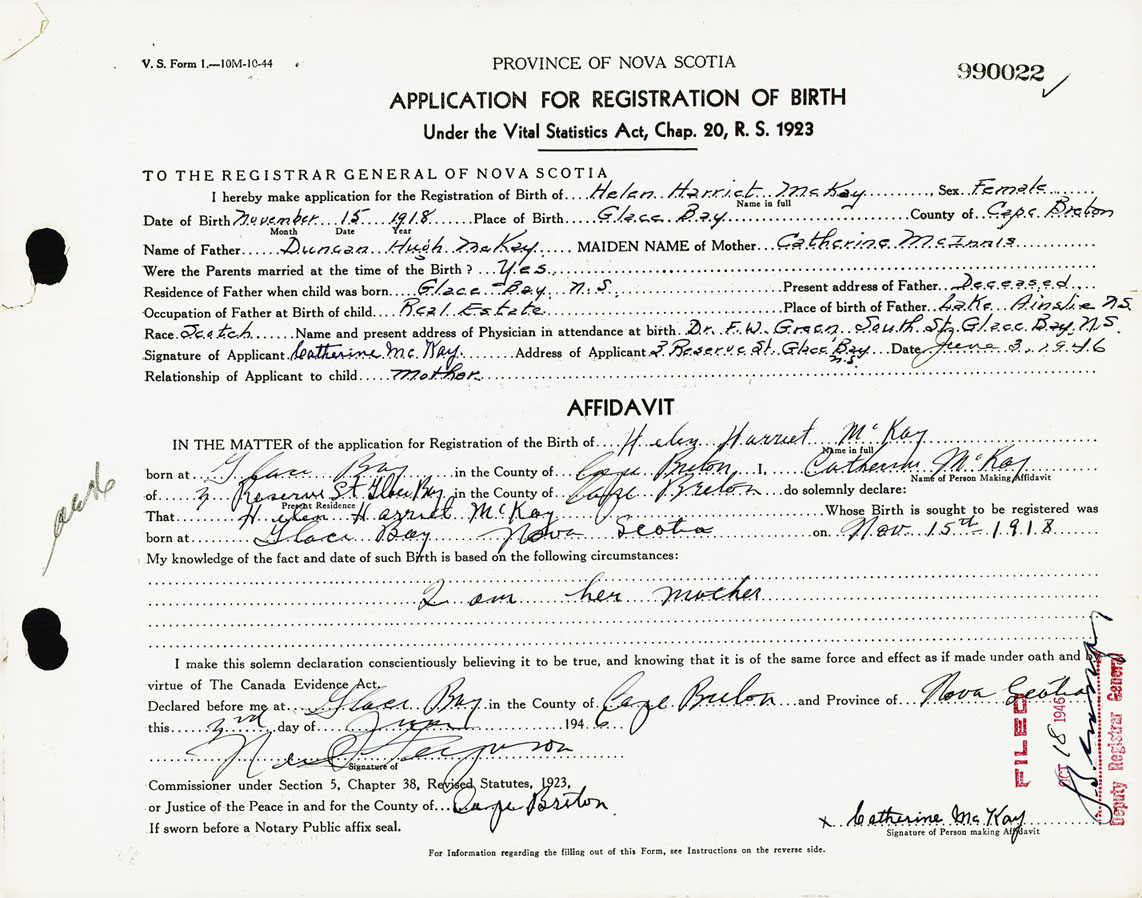 V. S. Form 1.—10M-10-44
PROVINCE OF NOVA SCOTIA
990022
APPLICATION FOR REGISTRATION OF BIRTH
Under the Vital Statistics Act, Chap. 20, R. S. 1923
TO THE REGISTRAR GENERAL OF NOVA SCOTIA
I hereby make application for the Registration of Birth of Helen Harriet McKay, Sex Female
Name in full
Date of Birth November 15 1918 Place of Birth Glace Bay County of Cape Breton
Month Date Year
Name of Father Duncan Hugh McKay MAIDEN NAME of Mother Catherine McInnis
Were the Parents married at the time of the Birth? Yes
Residence of Father when child was born Glace Bay N.S. Present address of Father Deceased
Occupation of Father at Birth of child Real Estate Place of birth of Father Lake Ainslie N.S.
Race Scotch Name and present address of Physician in attendance at birth Dr. F.W. Green South St. Glace Bay N.S.
Signature of Applicant Catherine Mc Kay Address of Applicant 3 Reserve St. Glace Bay N.S. Date June 3, 1946
Relationship of Applicant to child Mother
AFFIDAVIT
IN THE MATTER of the application for Registration of the Birth of Helen Harriet McKay
Name in full
born at Glace Bay in the County of Cape Breton I, Catherine McKay
Name of Person Making Affidavit
of 3 Reserve St. Glace Bay in the County of Cape Breton do solemnly declare:
Present Residence
That Helen Harriet McKay Whose Birth is sought to be registered was
born at Glace Bay Nova Scotia on Nov. 15th 1918
My knowledge of the fact and date of such Birth is based on the following circumstances:
I am her mother
I make this solemn declaration conscientiously believing it to be true, and knowing that it is of the same force and effect as if made under oath and by
virtue of The Canada Evidence Act.
Declared before me at Glace Bay in the County of Cape Breton and Province of Nova Scotia
this 3rd day of June 1946
Ferguson
Signature of
Commissioner under Section 5, Chapter 38, Revised Statutes, 1923,
or Justice of the Peace in and for the County of Cape Briton
If sworn before a Notary Public affix seal.
x Catherine Mc Kay
Signature of Person making Affidavit
FILED
OCT 18 1946
Deputy Registrar General
For Information regarding the filling out of this Form, see Instructions on the reverse side.